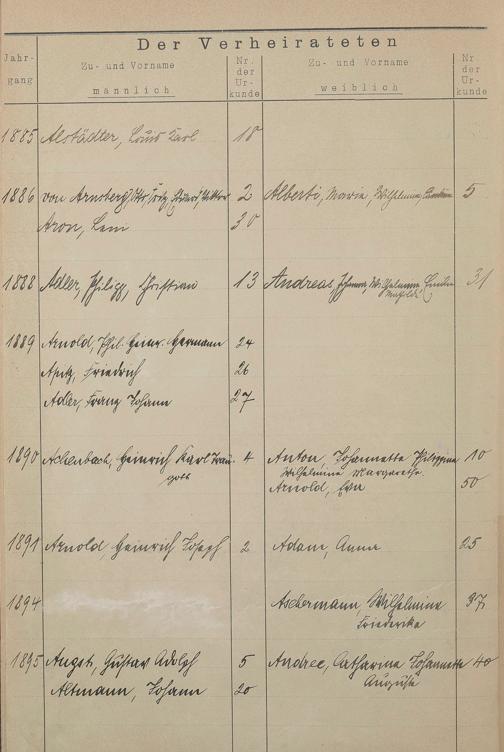 Der Verheirateten
Jahr-
gang
Zu- und Vorname
männlich
Nr.
der
Ur-
kunde
Zu- und Vorname
weiblich
Nr.
der
Ur-
kunde
1885 Alstädter, Louis Karl 10
1886 von Arnsberg, Otto, Fritz, Eduard, Viktor 2 Alberti, Maria, Wilhelmine, 5
Aron, Leni 30
1888 Adler, Philipp, Christian 13 Andreas, Johanna, Wilhelmine Emilie 31
Mathilde
1889 Arnold, Phil. Heinr. Hermann 24
Friedrich 26
Adler, Franz Johann 27
1890 Achenbach, Heinrich Karl Trau- 4 Anton, Johannette Philippine 10
gott Wilhelmine Margarethe
Arnold, Eva 50
1891 Arnold, Heinrich Joseph 2 Adam, Anna 25
1894 Aschermann, Wilhelmine 37
Friedericke
1895 Angst, Gustav Adolph 5 Andree, Catharina Johannette 40
Auguste
Altmann, Johann 20